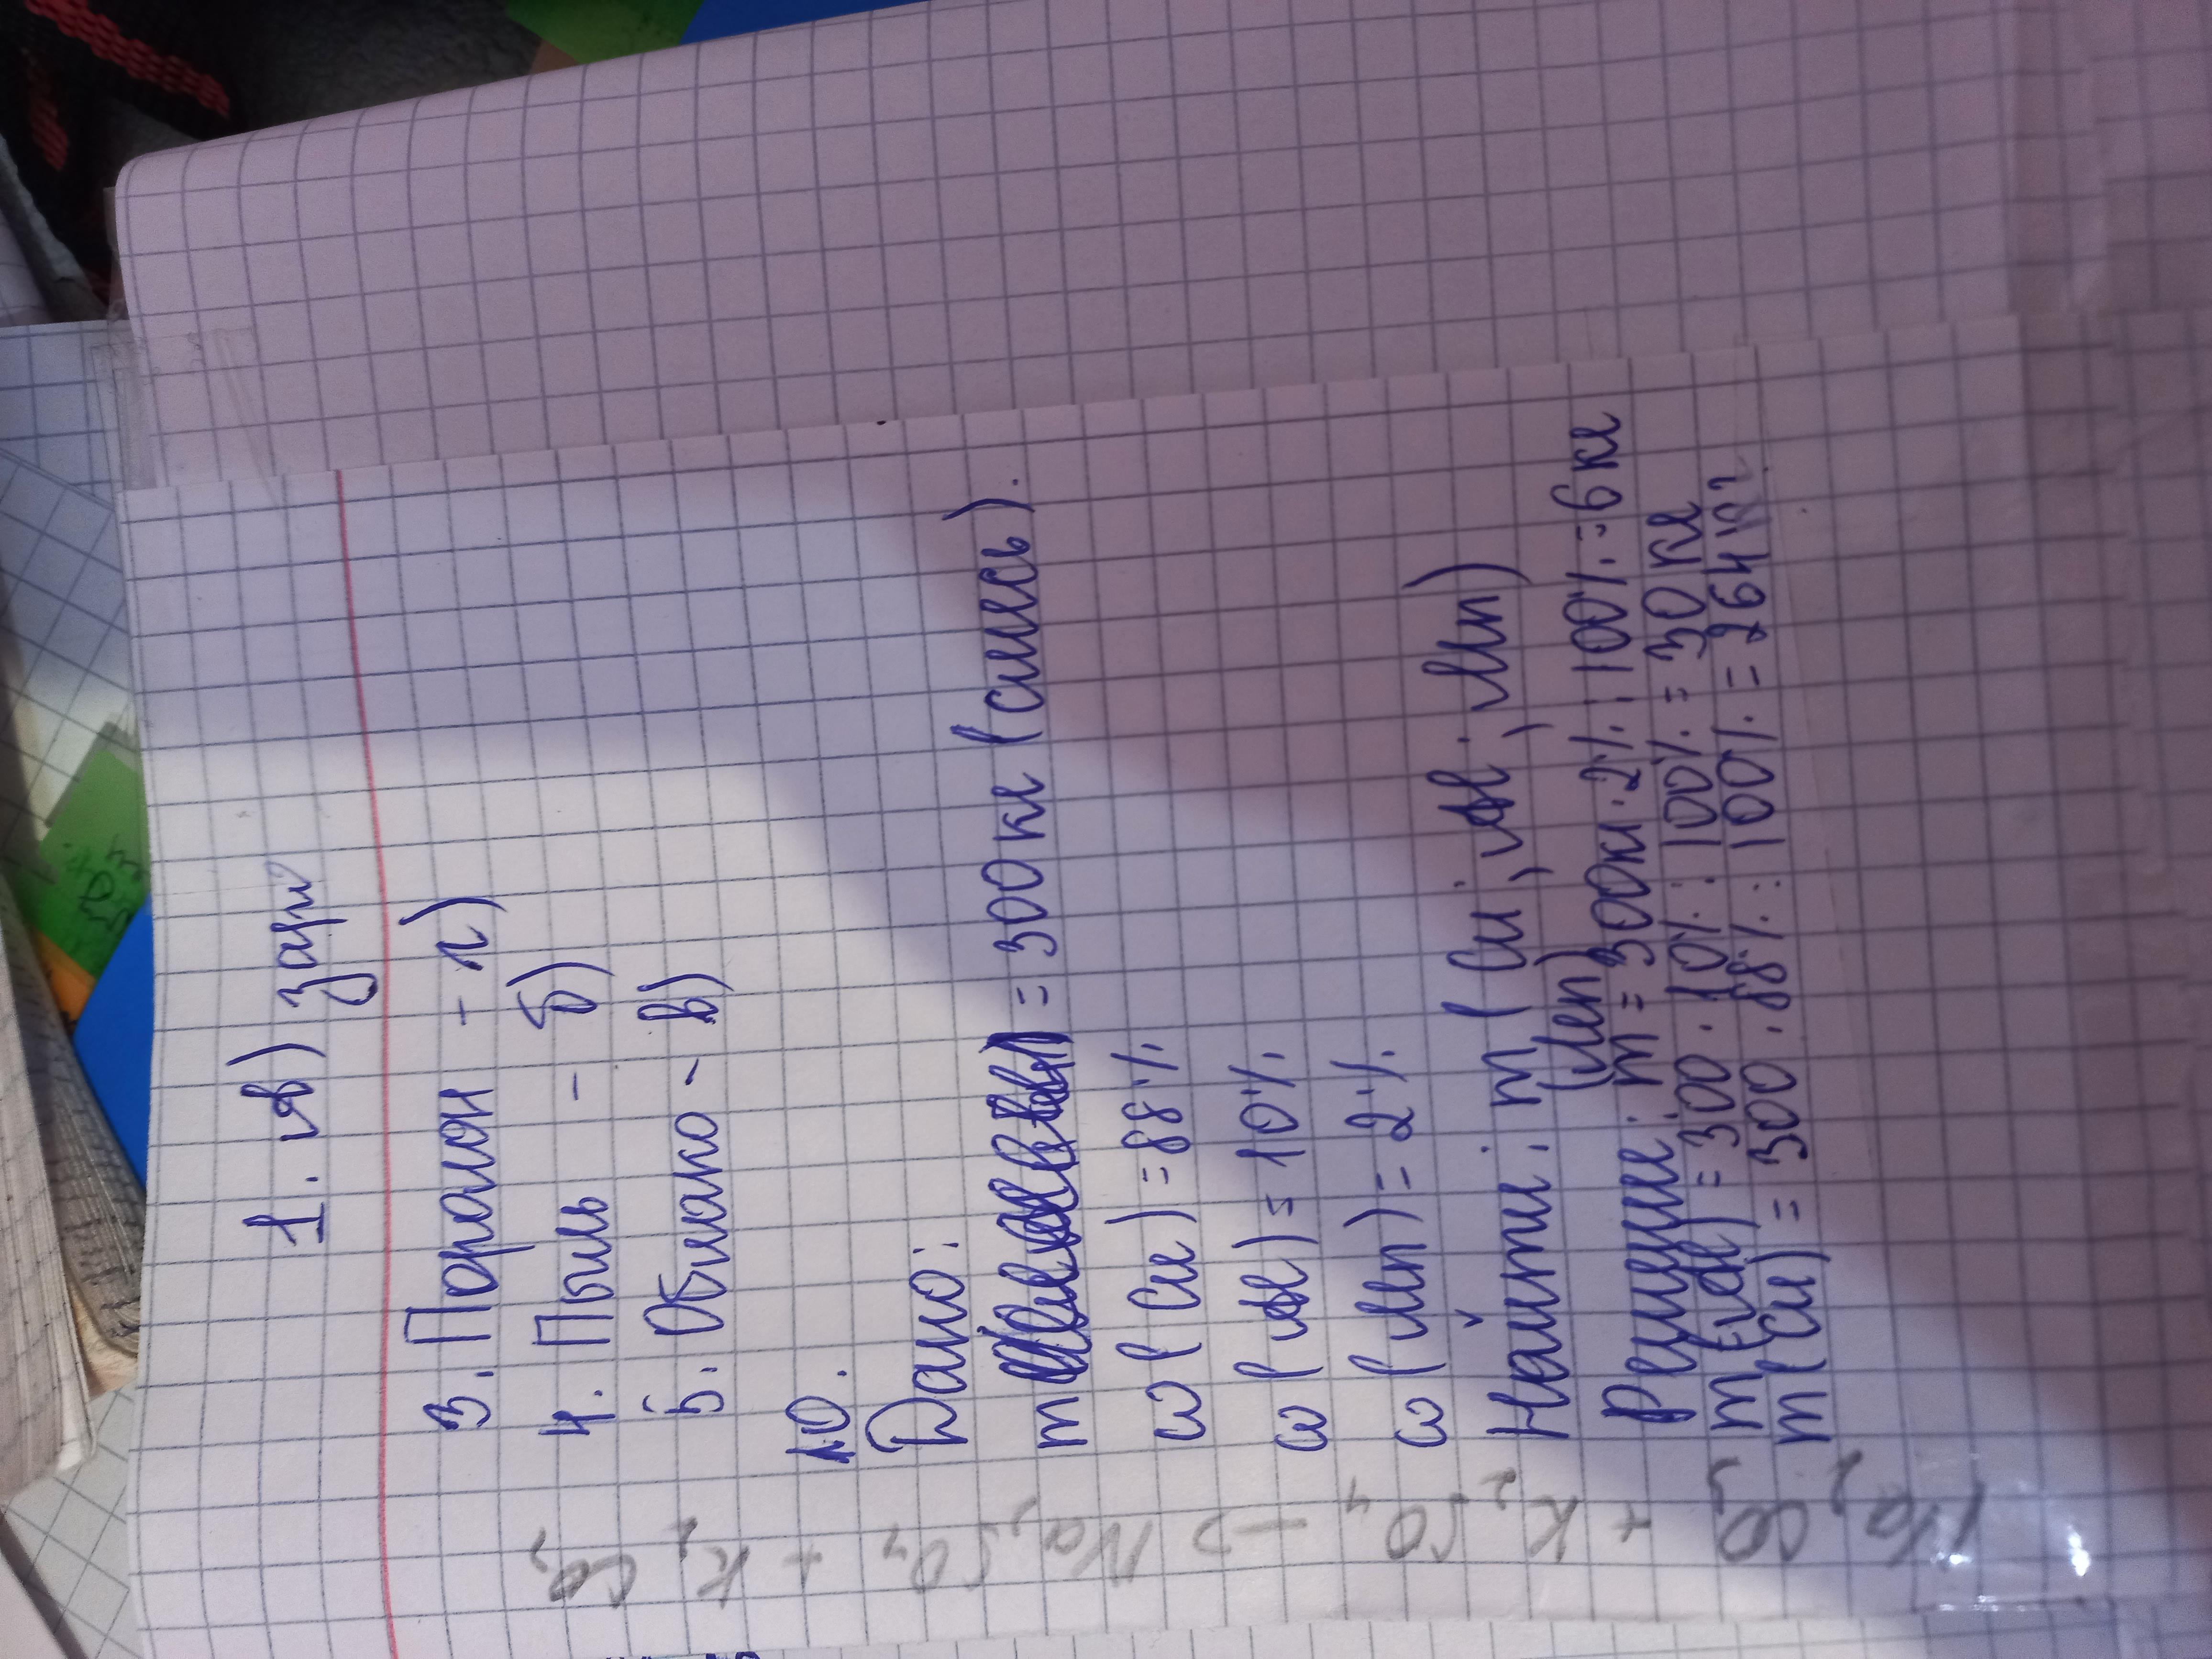 1. А) зари
3. Поролон - г)
4. Пыль - б)
5. Облако - в)
10.
Дано:
m = 300 кг (смесь).
ω (Cu) = 88%
ω (Al) = 10%
ω (Mn) = 2%
Найти: m (Cu, Al, Mn)
(Mn)
Решение: m = 300кг · 2% : 100% = 6 кг
m(Al) = 300 · 10% : 100% = 30 кг
m(Cu) = 300 · 88% : 100% = 264 кг
Na2CO3 + K2SO4 → Na2SO4 + K2CO3